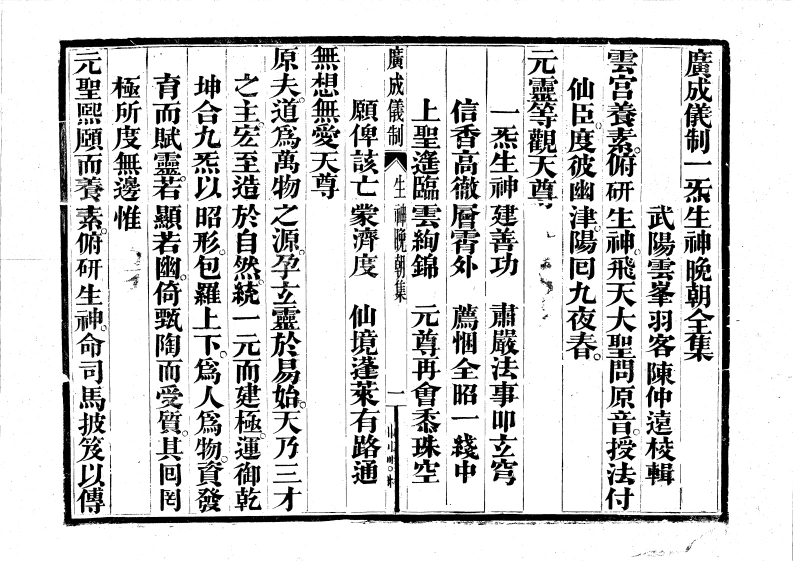 廣成儀制一炁生神晚朝全集
武陽雲峯羽客陳仲遠校輯
雲宮養素。俯研生神。飛天大聖問原音。授法付
仙臣。度彼幽津。陽回九夜春。
元靈等觀天尊
一炁生神建善功　肅嚴法事叩玄穹
信香高徹層霄外　薦悃全昭一綫中
上聖遙臨雲絢錦　元尊再會黍珠空
願俾該亡蒙濟度　仙境蓬萊有路通
廣成儀制　生神晚朝集　一
無想無愛天尊
原夫。道為萬物之源。孕玄靈於易始。天乃三才
之主。宏至造於自然。統一元而建極。運御乾
坤。合九炁以昭形。包羅上下。為人為物。資發
育而賦靈。若顯若幽。倚甄陶而受質。其囘罔
極。所度無邊。惟
元聖熙頤而養素。俯研生神。命司馬披笈以傳